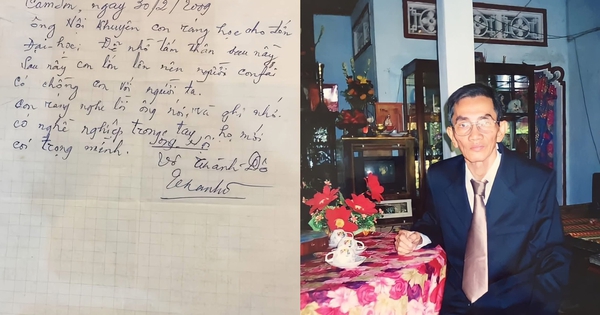 Camdm, ngày 20/2/2009
ông Nội khuyên con rang học cho đến
Đại học. Để nhớ tấn thân sau nầy
Sau nầy con lớn lên nên người con gái
có chồng con với người ta.
Con rang nghe lời ông nói, và ghi nhớ.
có nghề nghiệp trong tay, họ mới
coi trọng mình.
ông Nội
Võ Khánh Đô